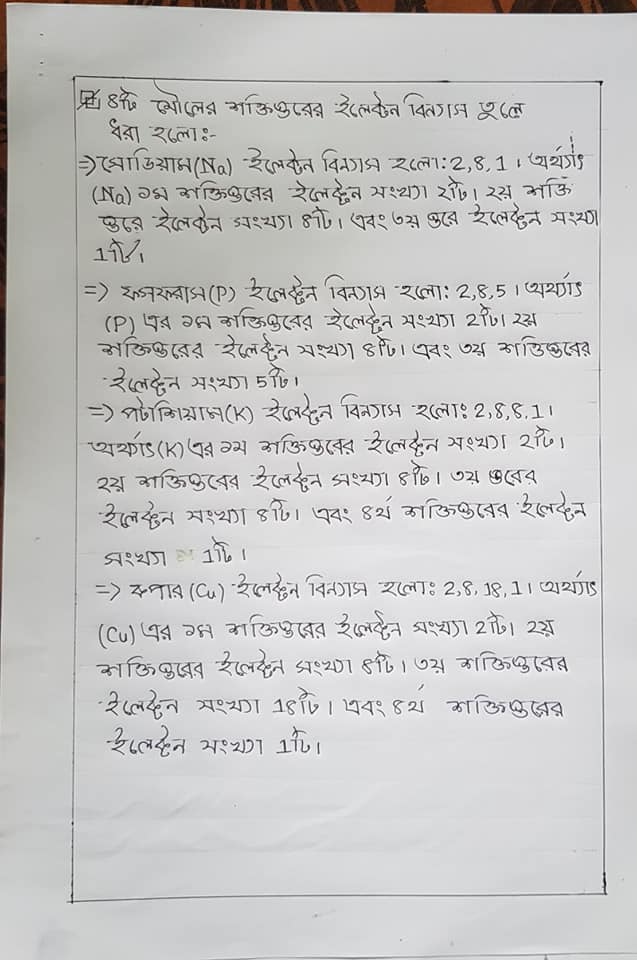 ৪টি মৌলের শক্তিস্তরের ইলেকট্রন বিন্যাস তুলে
ধরা হলো:-
⇒ সোডিয়াম(Na) ইলেকট্রন বিন্যাস হলো: 2,8,1। অর্থ্যাৎ
(Na) ১ম শক্তিস্তরের ইলেকট্রন সংখ্যা 2টি। ২য় শক্তি
স্তরে ইলেকট্রন সংখ্যা ৪টি। এবং ৩য় স্তরে ইলেকট্রন সংখ্যা
1টি।
=> ফসফরাস(P) ইলেকট্রন বিন্যাস হলো: 2,8,5। অর্থ্যাৎ
(P) এর ১ম শক্তিস্তরের ইলেকট্রন সংখ্যা 2টি। ২য়
শক্তিস্তরের ইলেকট্রন সংখ্যা 8টি। এবং ৩য় শক্তিস্তরের
ইলেকট্রন সংখ্যা 5টি।
=> পটাশিয়াম(K) ইলেকট্রন বিন্যাস হলো: 2,8,8,1।
অর্থাৎ(K) এর ১ম শক্তিস্তরের ইলেকট্রন সংখ্যা 2টি।
২য় শক্তিস্তরের ইলেকট্রন সংখ্যা 8টি। ৩য় স্তরের
ইলেকট্রন সংখ্যা 8টি। এবং ৪র্থ শক্তিস্তরের ইলেকট্রন
সংখ্যা 1টি।
=> কপার(Cu) ইলেকট্রন বিন্যাস হলো: 2,8,18,1। অর্থ্যাৎ
(Cu) এর ১ম শক্তিস্তরের ইলেকট্রন সংখ্যা 2টি। ২য়
শক্তিস্তরের ইলেকট্রন সংখ্যা 8টি। ৩য় শক্তিস্তরের
ইলেকট্রন সংখ্যা 18টি। এবং ৪র্থ শক্তিস্তরের
ইলেকট্রন সংখ্যা 1টি।